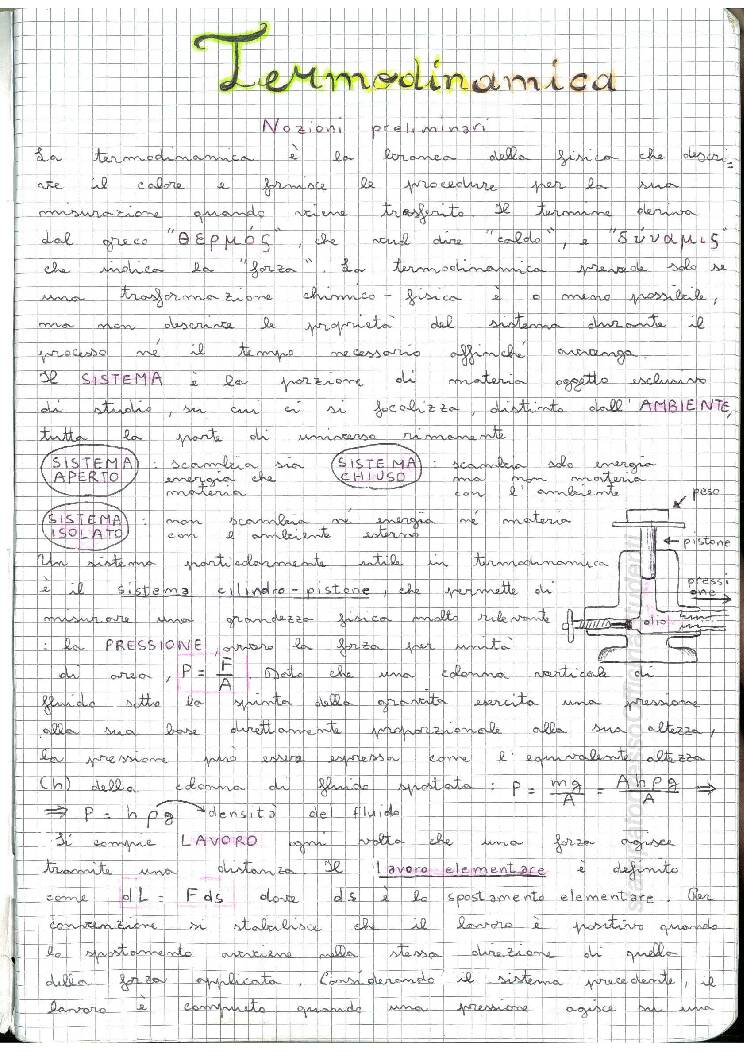 Termodinamica
Nozioni preliminari
La termodinamica è la branca della fisica che descri-
ve il calore e fornisce le procedure per la sua
misurazione quando viene trasferito. Il termine deriva
dal greco "θερμός", che vuol dire "caldo", e "δύναμις"
che indica la "forza". La termodinamica prevede solo se
una trasformazione chimico-fisica è o meno possibile,
ma non descrive le proprietà del sistema durante il
processo né il tempo necessario affinché avvenga.
Il SISTEMA è la porzione di materia oggetto esclusivo
di studio, su cui ci si focalizza, distinto dall'AMBIENTE,
tutta la parte di universo rimanente
SISTEMA APERTO : scambia sia energia che materia
SISTEMA CHIUSO : scambia solo energia ma non materia con l'ambiente
SISTEMA ISOLATO : non scambia né energia né materia con l'ambiente esterno
peso
pistone
pressione
olio
Un sistema particolarmente utile in termodinamica
è il sistema cilindro-pistone, che permette di
misurare una grandezza fisica molto rilevante
: la PRESSIONE, ovvero la forza per unità
di area, P = F/A. Dato che una colonna verticale di
fluido sotto la spinta della gravità esercita una pressione
alla sua base direttamente proporzionale alla sua altezza,
la pressione può essere espressa come l'equivalente altezza
(h) della colonna di fluido spostata : P = mg/A = Ahρg/A ⇒
⇒ P = hρg → densità del fluido
Si compie LAVORO ogni volta che una forza agisce
tramite una distanza. Il lavoro elementare è definito
come dL = Fds dove ds è lo spostamento elementare. Per
convenzione si stabilisce che il lavoro è positivo quando
lo spostamento avviene nella stessa direzione di quello
della forza applicata. Considerando il sistema precedente, il
lavoro è compiuto quando una pressione agisce su una